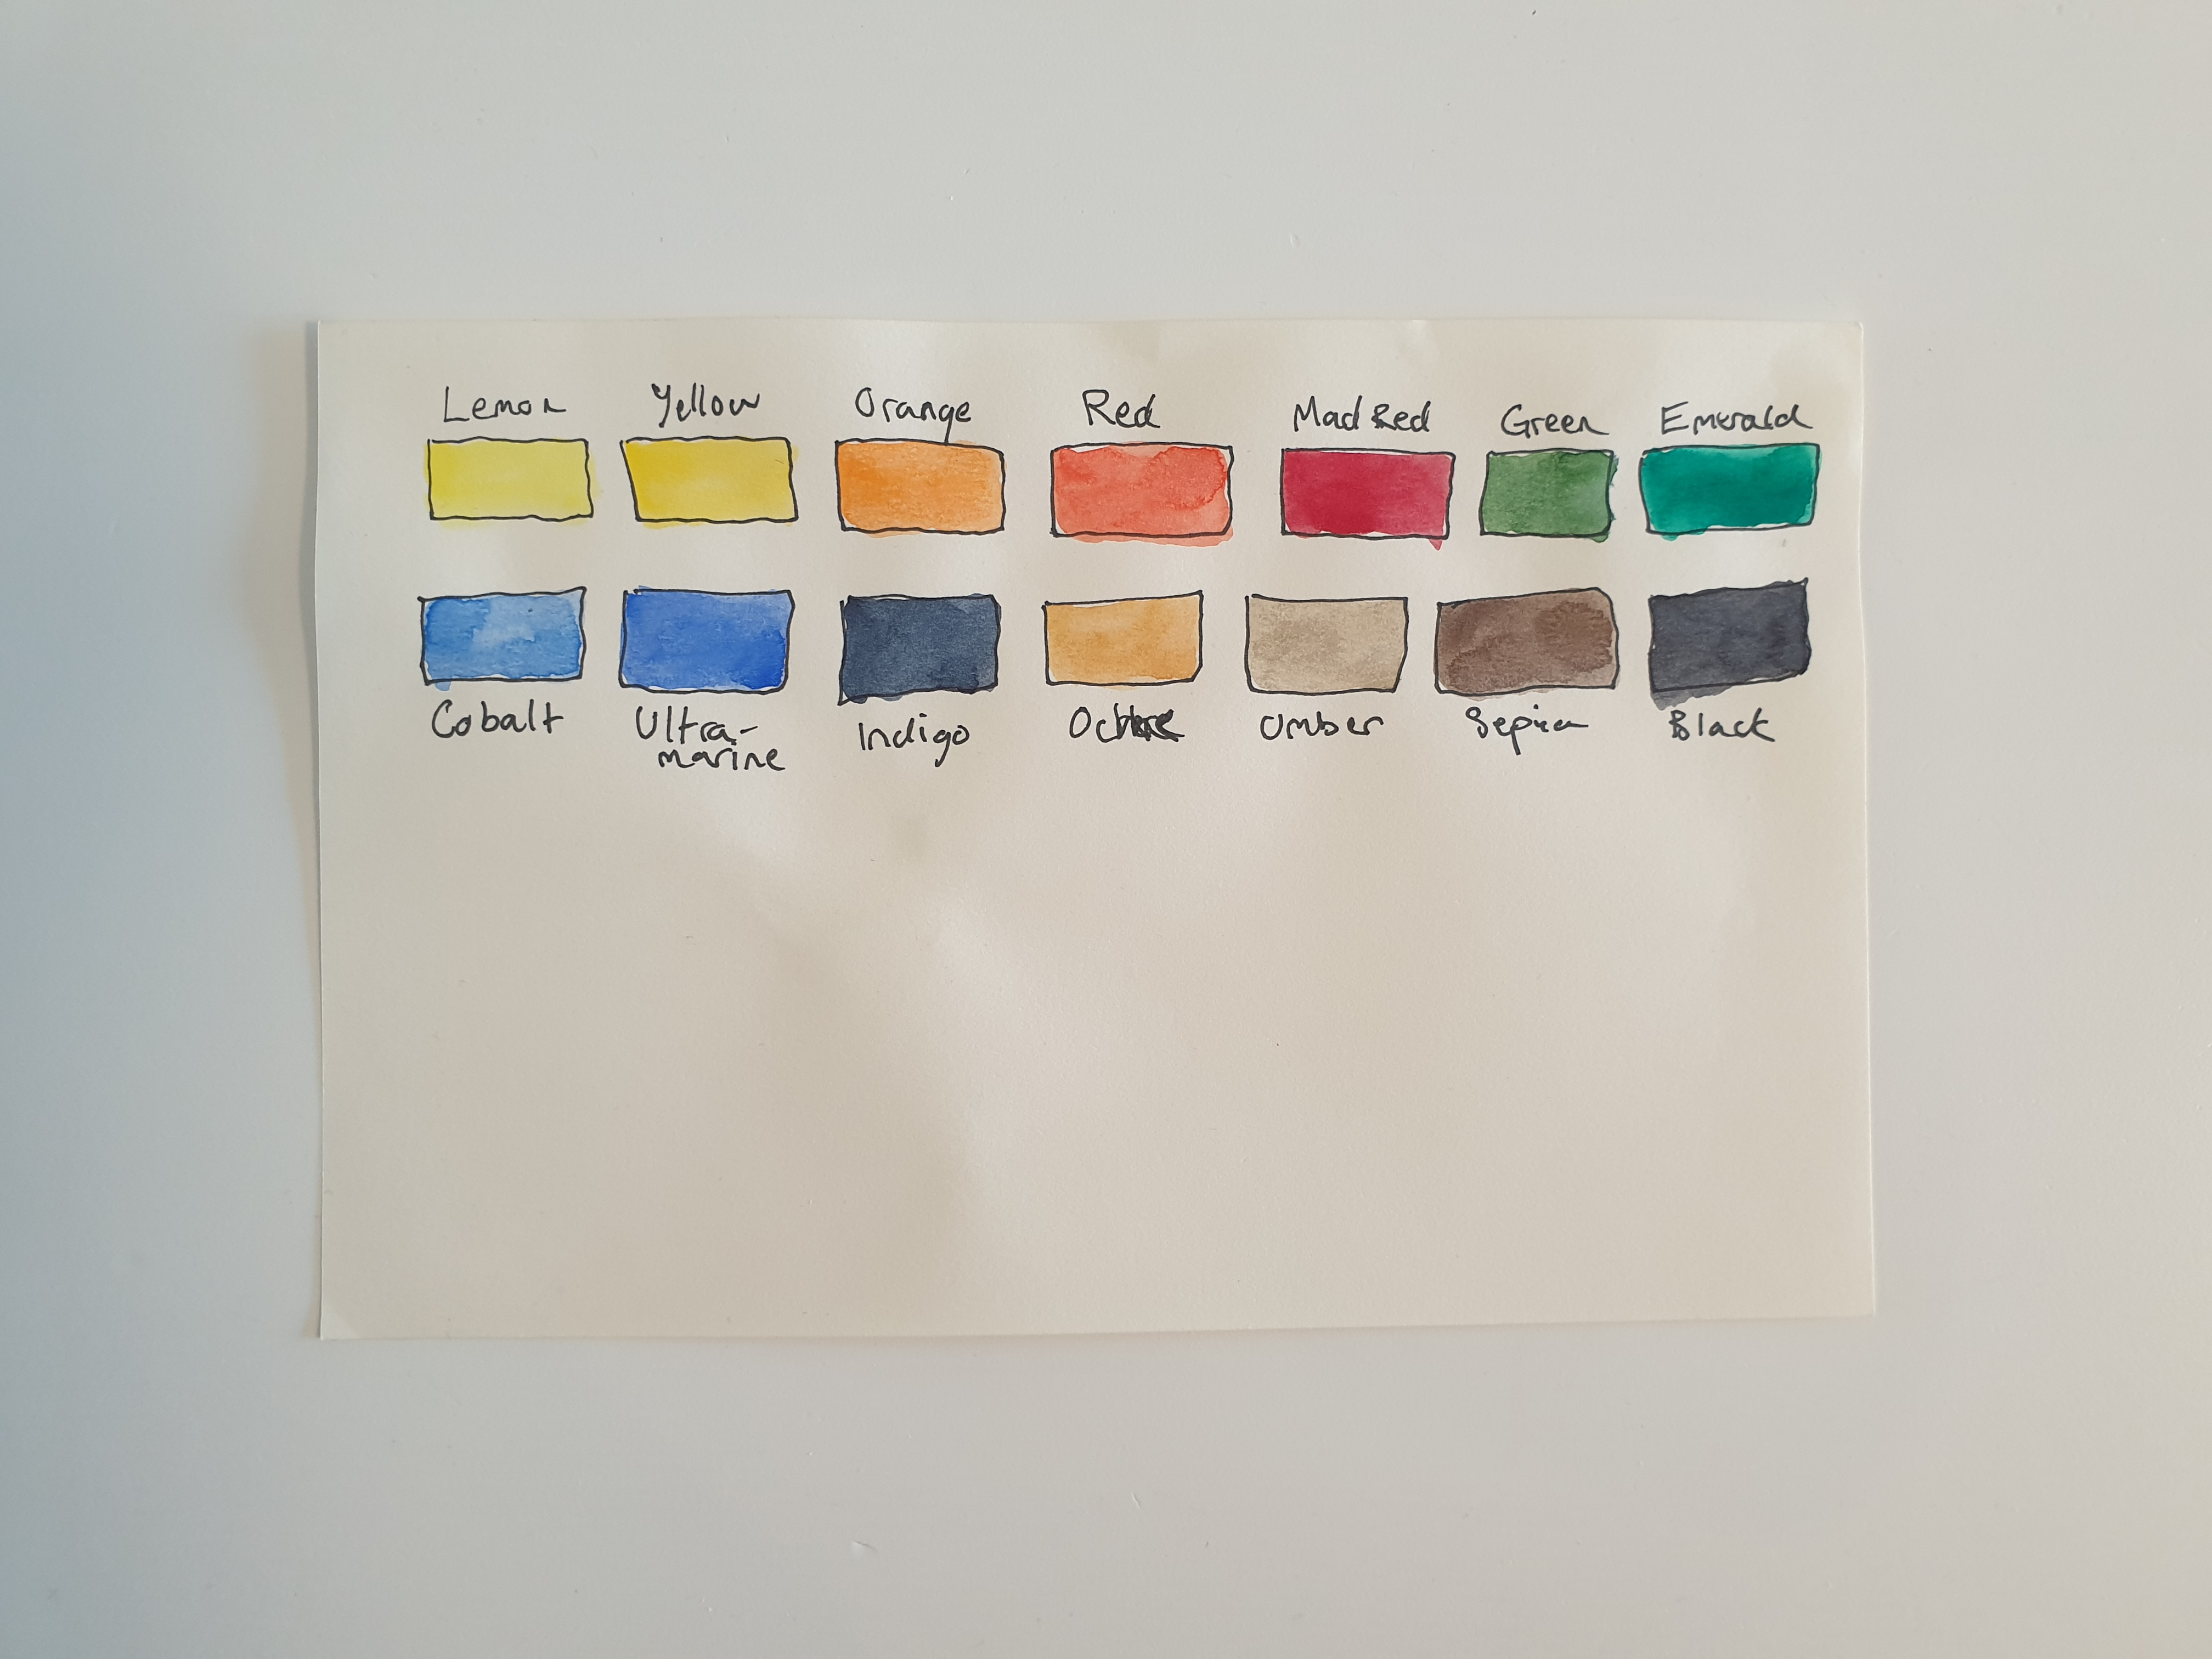 Lemon Yellow Orange Red Mad Red Green Emerald
Cobalt Ultra- Indigo Ochre Umber Sepia Black
marine